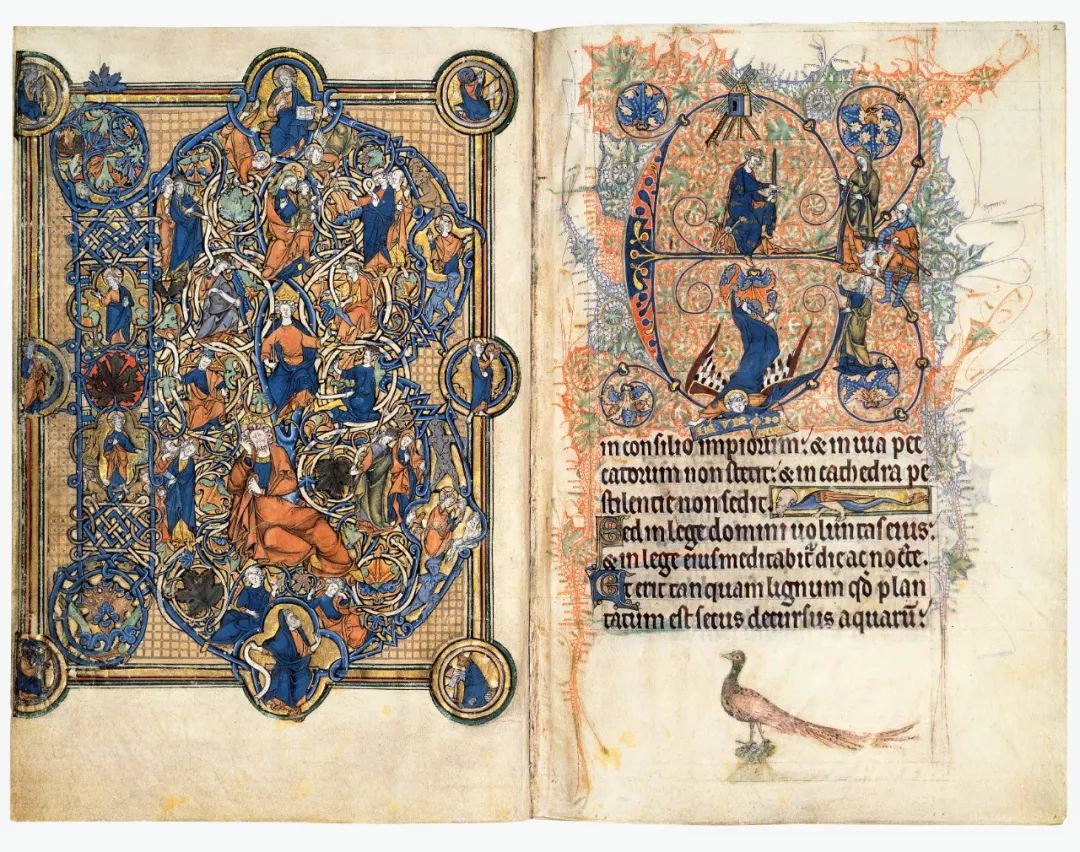 2
in consilio impiorum: & in uia pec
catorum non stetit: & in cathedra pe
stilencie non sedit.
Sed in lege domini uoluntas eius:
& in lege eius meditabit᷑ die ac nocte.
Et erit tanquam lignum qd̓ plan
tatum est secus decursus aquarū: